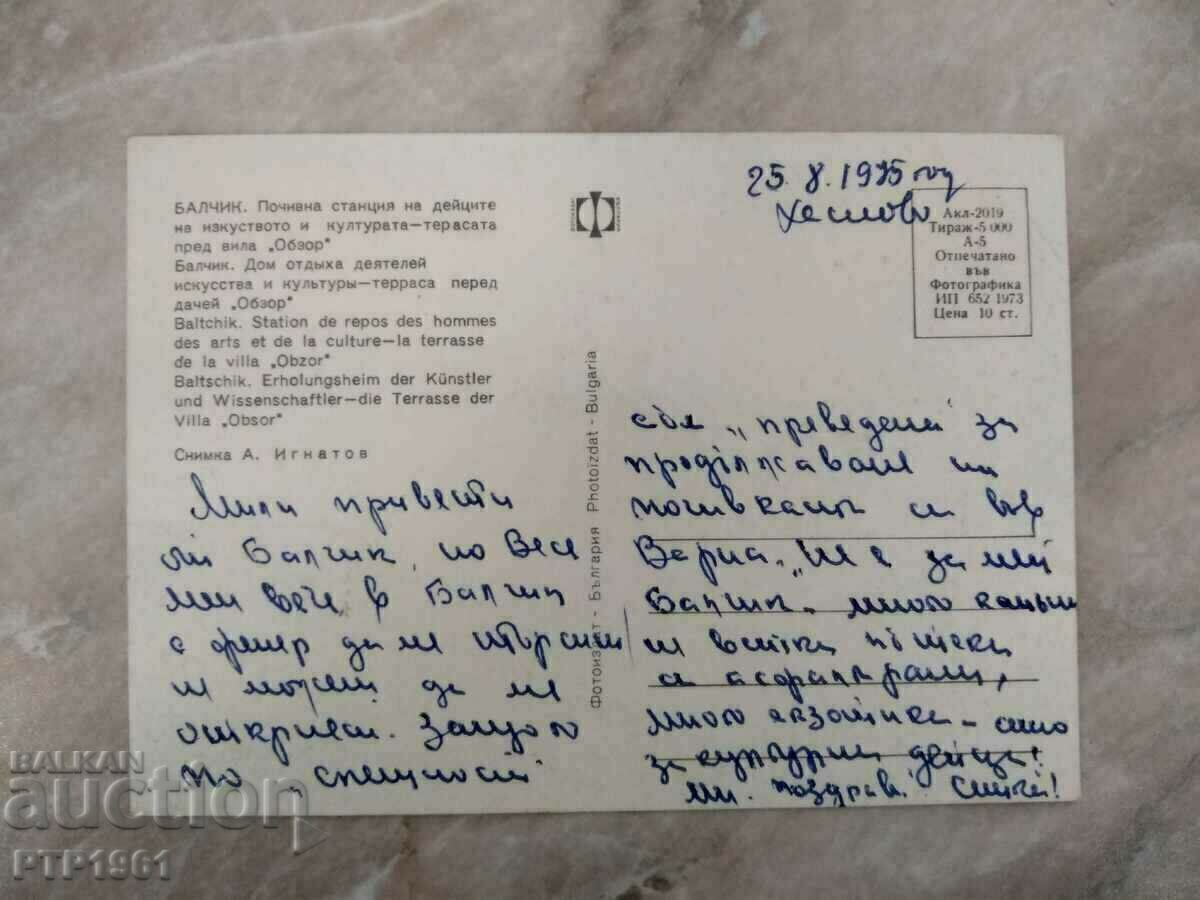 БАЛЧИК. Почивна станция на дейците
на изкуството и културата—терасата
пред вила „Обзор"
Балчик. Дом отдыха деятелей
искусства и культуры—терраса перед
дачей „Обзор"
Baltchik. Station de repos des hommes
des arts et de la culture—la terrasse
de la villa „Obzor"
Baltschik. Erholungsheim der Künstler
und Wissenschaftler—die Terrasse der
Villa „Obsor"
Снимка А. Игнатов
Мили привети
от Балчик, но
ми вече в Балчик
с да ме търсиш
не можеш да ме
откриеш. Защото
по спешност
Фотоиздат - България Photoizdat - Bulgaria
25. 8. 1975 год
Акл-2019
Тираж-5 000
А-5
Отпечатано
във
Фотографика
ИП 652 1973
Цена 10 ст.
съм „преведена за
продължаване на
почивката си във
Варна.
Балчик. много
и всички пътеки
са асфалтирани,
много екзотика - само
за културни дейци!
поздрави!
BALKAN
auction
PTP1961